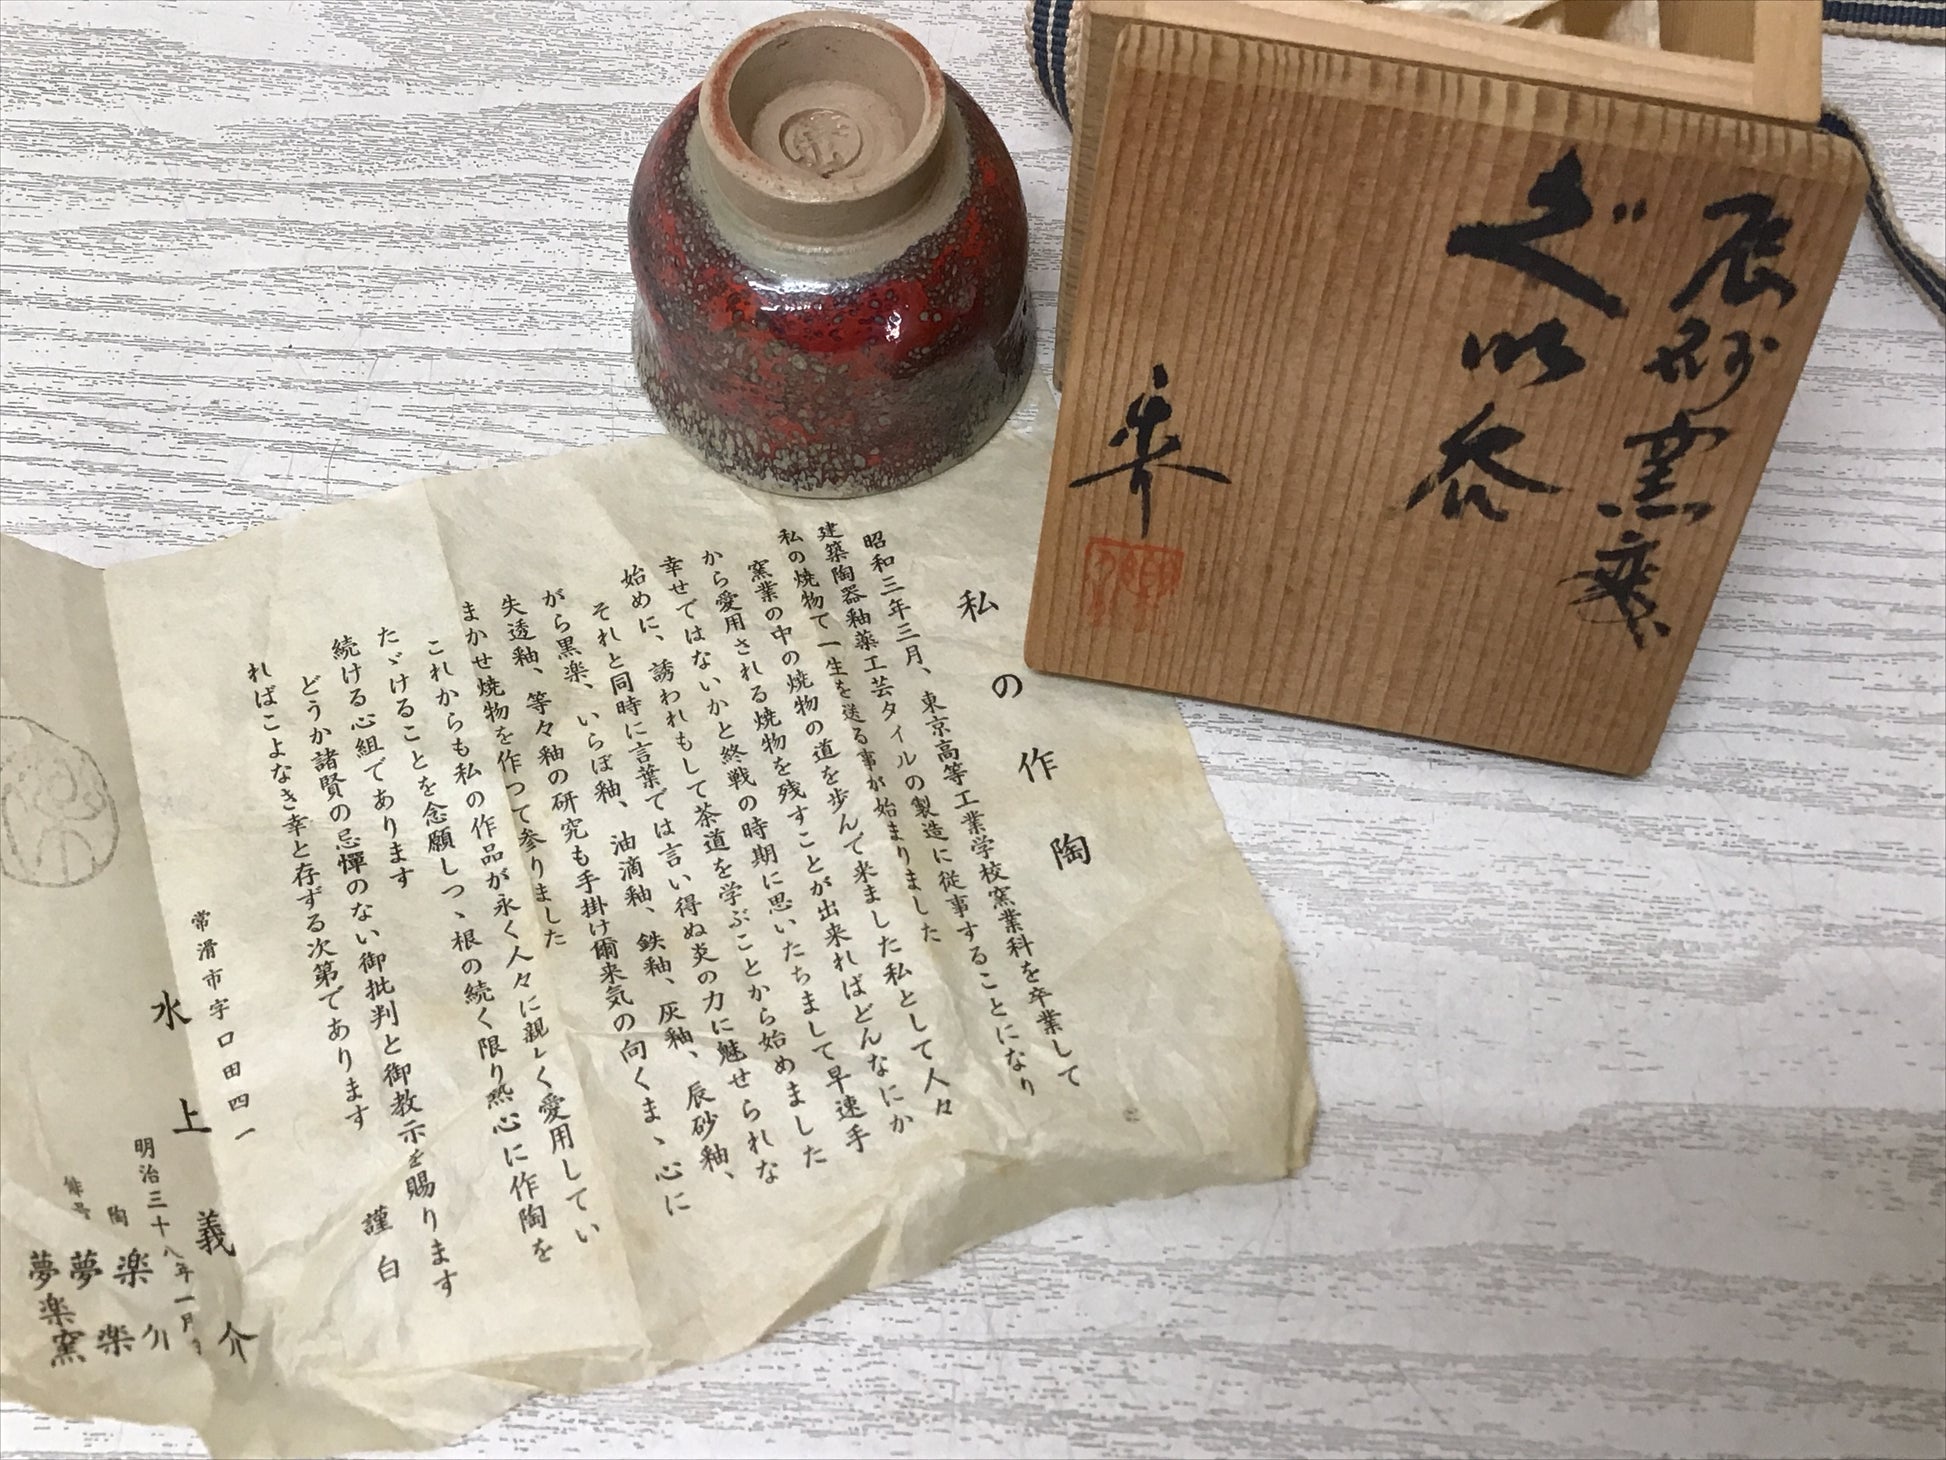 辰砂窯変
ぐい呑
楽介
私の作陶
昭和三年三月、東京高等工業学校窯業科を卒業して
建築陶器釉薬工芸タイルの製造に従事することになり
私の焼物で一生を送る事が始まりました
窯業の中の焼物の道を歩んで来ました私として人々
から愛用される焼物を残すことが出来ればどんなにか
幸せではないかと終戦の時期に思いたちまして早速手
始めに、誘われもして茶道を学ぶことから始めました
それと同時に言葉では言い得ぬ炎の力に魅せられな
がら黒楽、いらぼ釉、油滴釉、鉄釉、灰釉、辰砂釉、
失透釉、等々釉の研究も手掛け爾来気の向くまゝ心に
まかせ焼物を作つて参りました
これからも私の作品が永く人々に親しく愛用してい
たゞけることを念願しつゝ根の続く限り熱心に作陶を
続ける心組であります
どうか諸賢の忌憚のない御批判と御教示を賜ります
ればこよなき幸と存ずる次第であります
謹白
常滑市字口田四一
水上義介
明治三十八年一月
陶 楽介
俳号 夢楽
夢楽窯